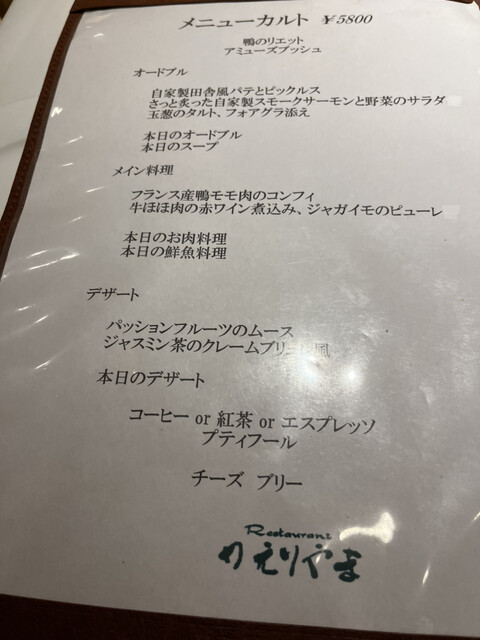 メニューカルト ￥5800
鴨のリエット
アミューズブッシュ
オードブル
自家製田舎風パテとピックルス
さっと炙った自家製スモークサーモンと野菜のサラダ
玉葱のタルト、フォアグラ添え
本日のオードブル
本日のスープ
メイン料理
フランス産鴨モモ肉のコンフィ
牛ほほ肉の赤ワイン煮込み、ジャガイモのピューレ
本日のお肉料理
本日の鮮魚料理
デザート
パッションフルーツのムース
ジャスミン茶のクレームブリュレ風
本日のデザート
コーヒー or 紅茶 or エスプレッソ
プティフール
チーズ ブリー
Restaurant
めえりやま